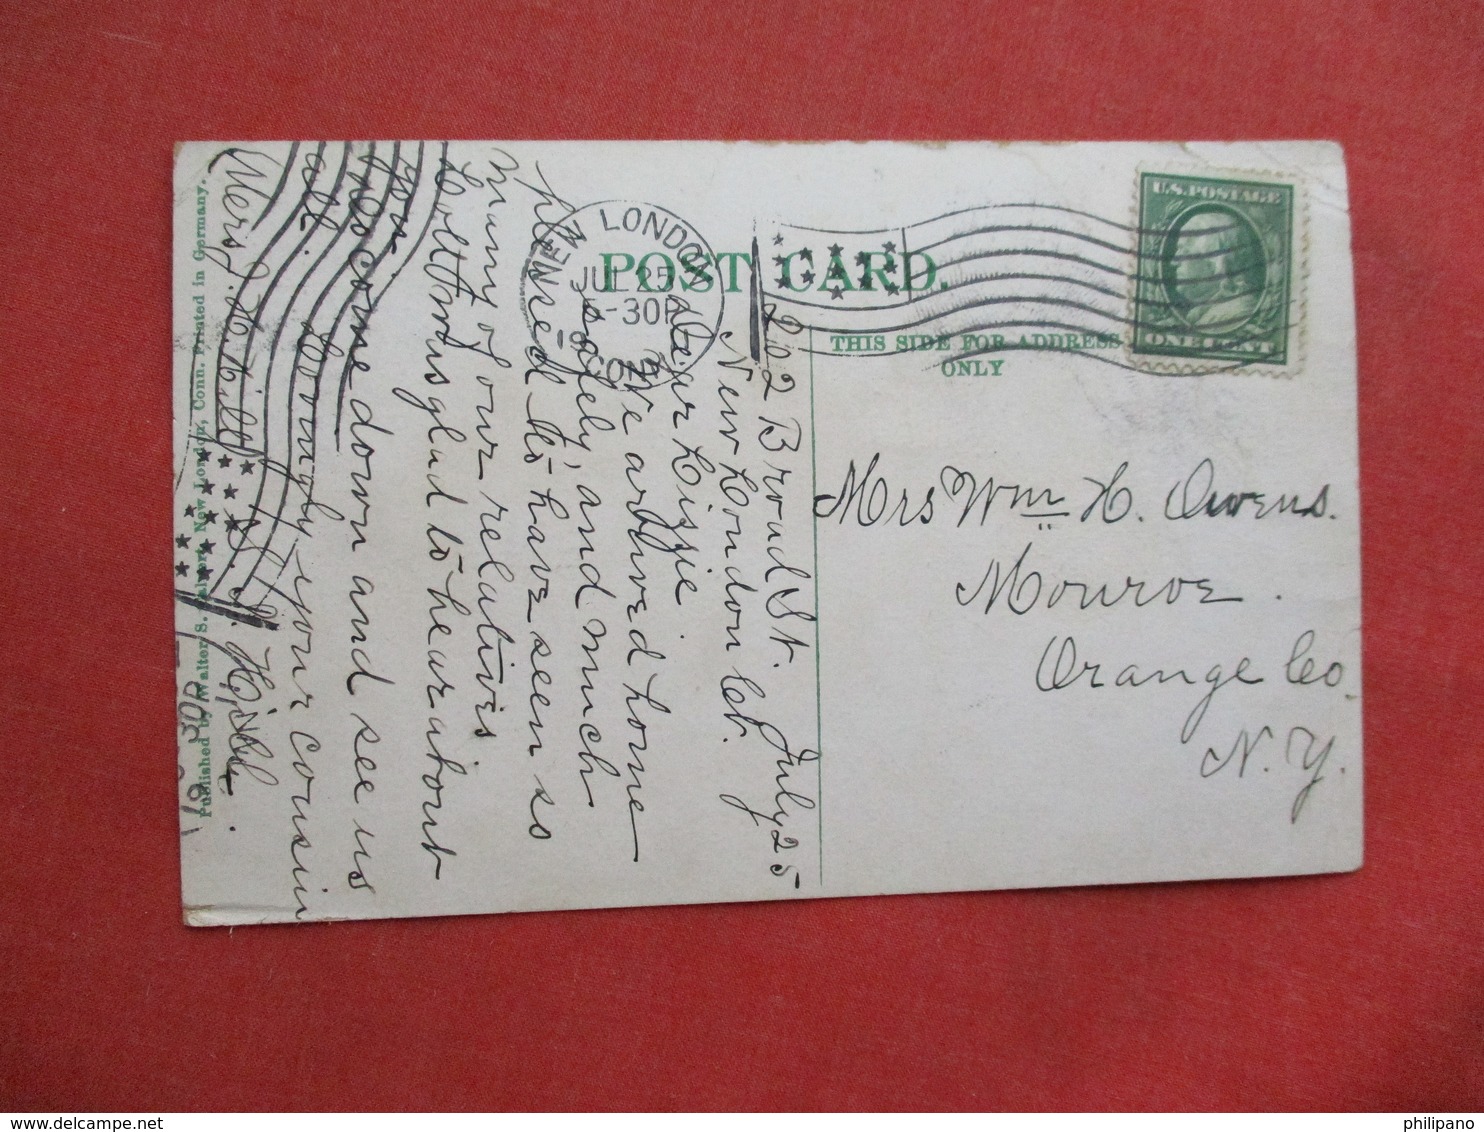 POST CARD.
THIS SIDE FOR ADDRESS
ONLY
U.S. POSTAGE
ONE CENT
NEW LONDON
JUL 25
-30P
Mrs Wm H. Owens.
Monroe.
Orange Co.
N. Y.
202 Broad St. July 25
New London Ct.
Dear Lizzie
We arrived home
safely, and much
pleased to have seen so
many of our relatives
Colt & us glad to hear about
you.
Do come down and see us
all. Lovingly your cousin
Mers J. H. Hill
Published by Walter S. Calvert, New London, Conn. Printed in Germany.
philipano